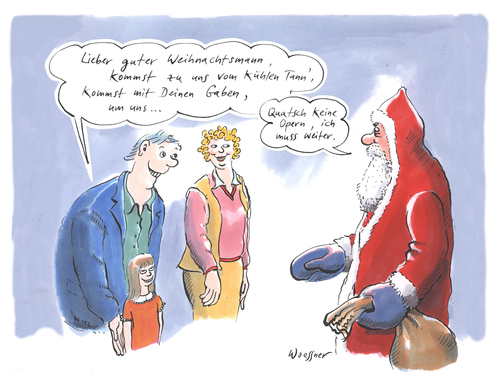 Lieber guter Weihnachtsmann,
kommst zu uns vom kühlen Tann',
kommst mit Deinen Gaben,
um uns...
Quatsch keine
Opern, ich
muss weiter.
Woessner